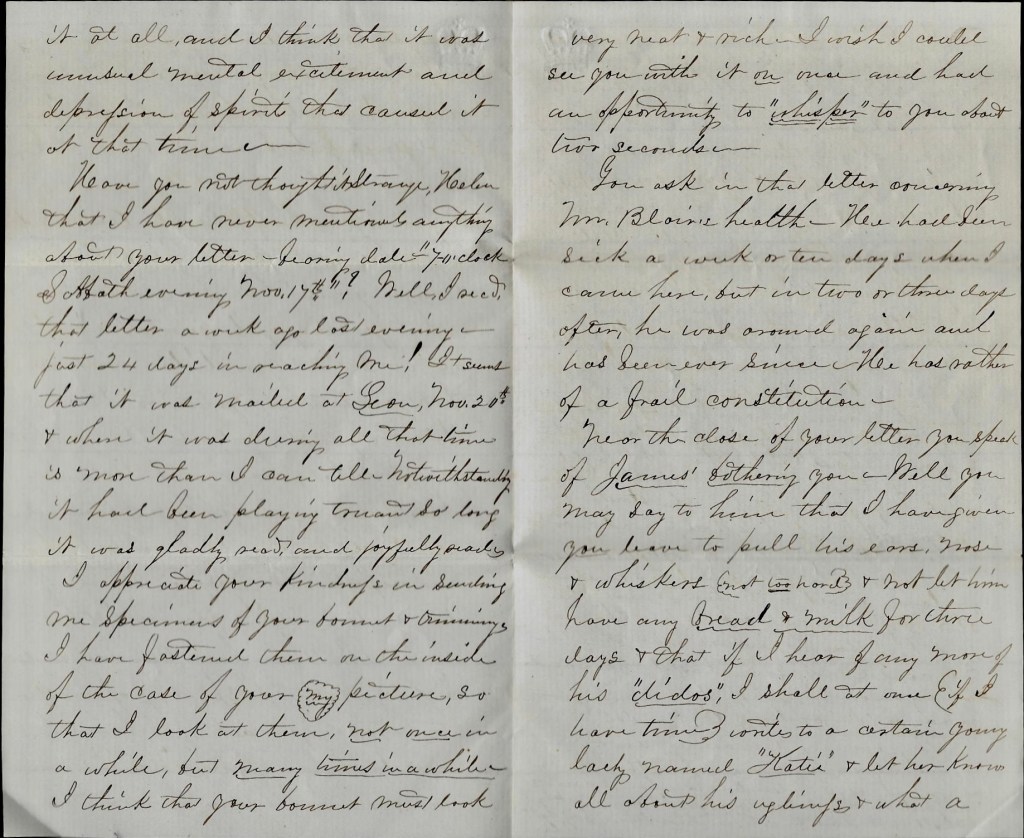 it at all, and I think that it was
unusual mental excitement and
depression of spirits that caused it
at that time —
Have you not thought it strange, Helen
that I have never mentioned anything
about your letter — bearing date "7 o'clock
Sabbath evening Nov. 17th"? Well, I recd.
that letter a week ago last evening —
just 24 days in reaching me! It seems
that it was mailed at Leon, Nov. 20th
& where it was during all that time
is more than I can tell — Notwithstanding
it had been playing truant so long
it was gladly recd, and joyfully read —
I appreciate your kindness in sending
me specimens of your bonnet & trimmings
I have fastened them on the inside
of the case of your (my) picture, so
that I look at them, not once in
a while, but many times in a while —
I think that your bonnet must look
very neat & rich — I wish I could
see you with it on once and had
an opportunity to "whisper" to you about
two seconds —
You ask in that letter concerning
Mr. Blair's health — He had been
sick a week or ten days when I
came here, but in two or three days
after, he was around again and
has been ever since — He has rather
of a frail constitution —
Near the close of your letter you speak
of James' bothering you — Well you
may say to him that I have given
you leave to pull his ears, nose
& whiskers (not too hard) & not let him
have any bread & milk for three
days & that if I hear of any more of
his "didos", I shall at once (if I
have time) write to a certain young
lady named "Katie" & let her know
all about his ugliness & what a